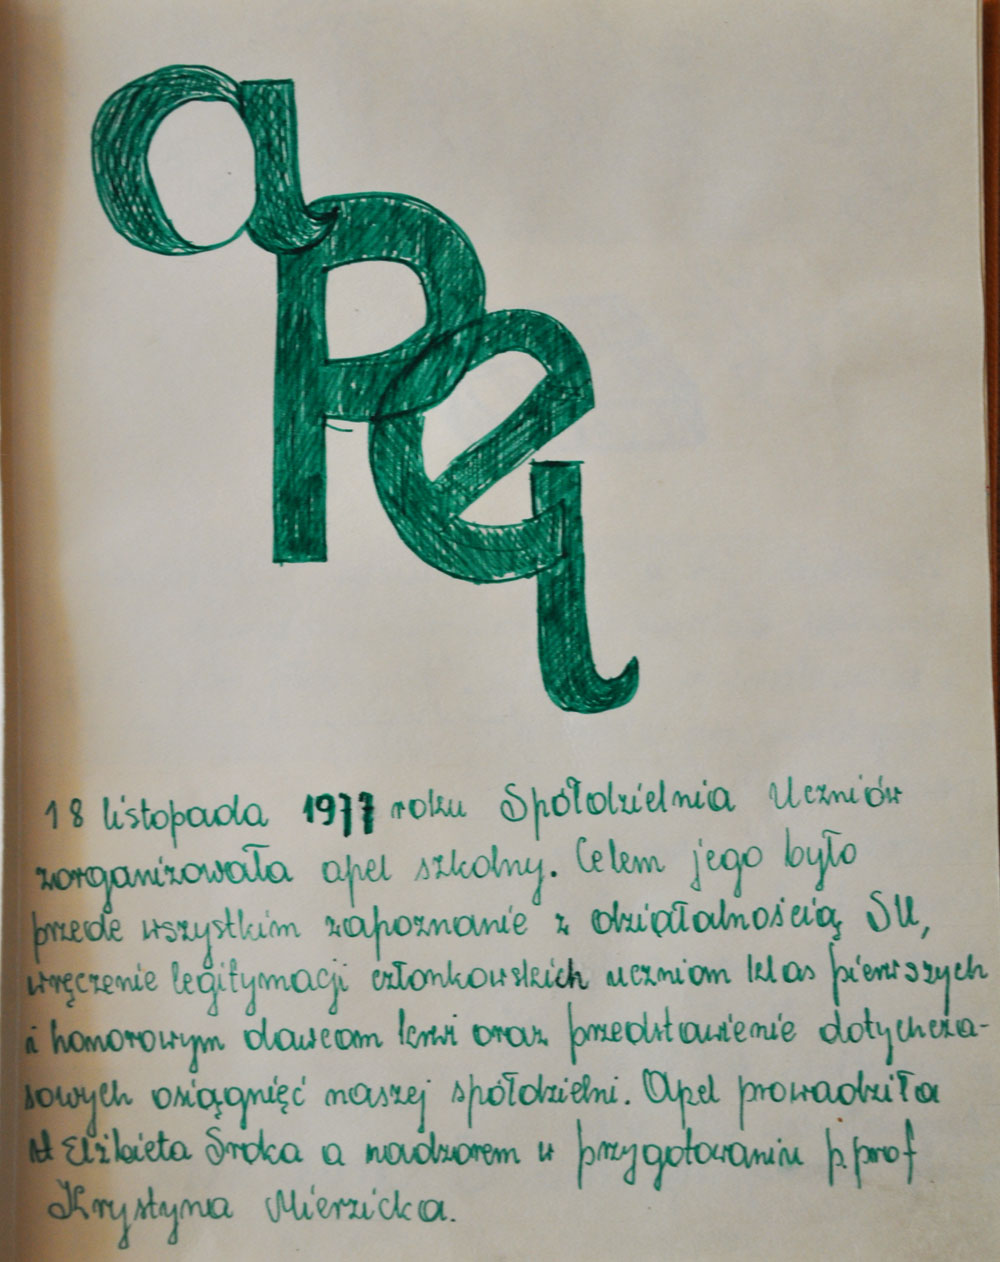 apel
18 listopada 1977 roku Spółdzielnia Uczniów
zorganizowała apel szkolny. Celem jego było
przede wszystkim zapoznanie z działalnością SU,
wręczenie legitymacji członkowskich uczniom klas pierwszych
i honorowym dawcom krwi oraz przedstawienie dotychcza-
sowych osiągnięć naszej spółdzielni. Apel prowadziła
Elżbieta Sroka a nadzorem w przygotowaniu p. prof
Krystyna Mierzicka.